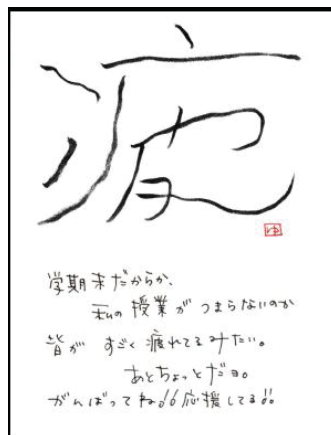 疲
ゆ
学期末だからか、
私の授業がつまらないのか
皆がすごく疲れてるみたい。
あとちょっとだヨ。
がんばってね!!応援してる!!